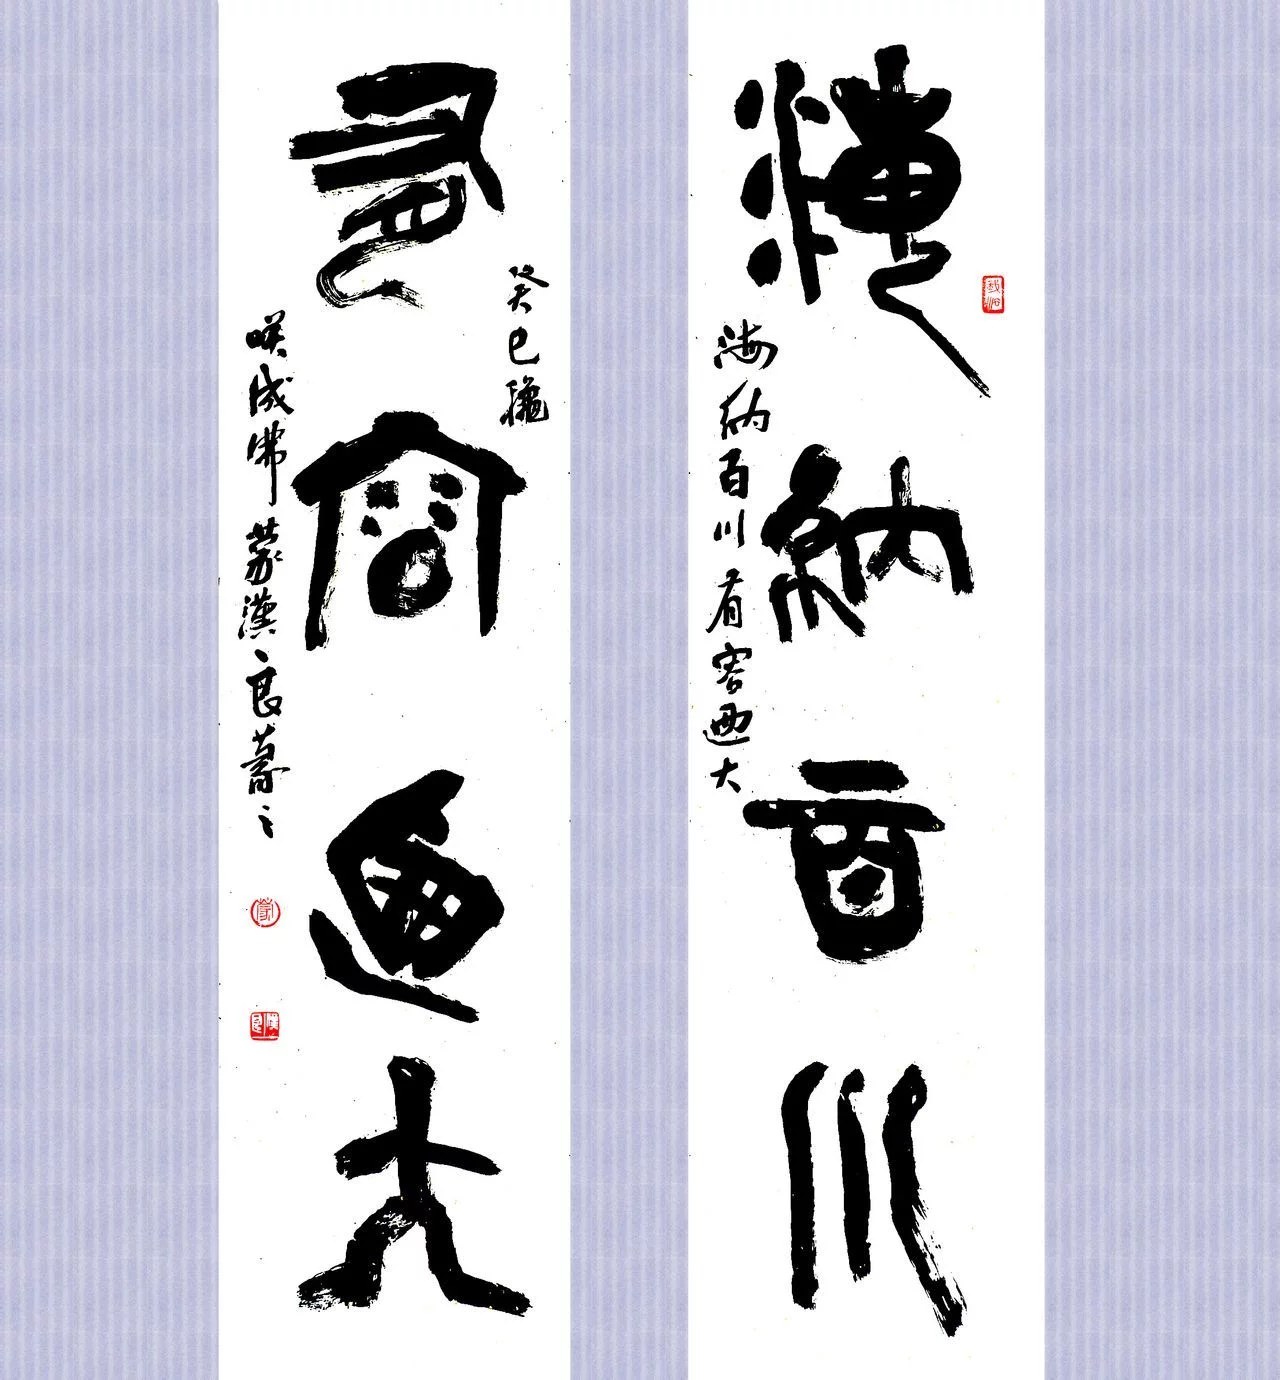 海納百川
海納百川有容迺大
有容迺大
癸巳龝
咲成佛蒙漢良蒙之